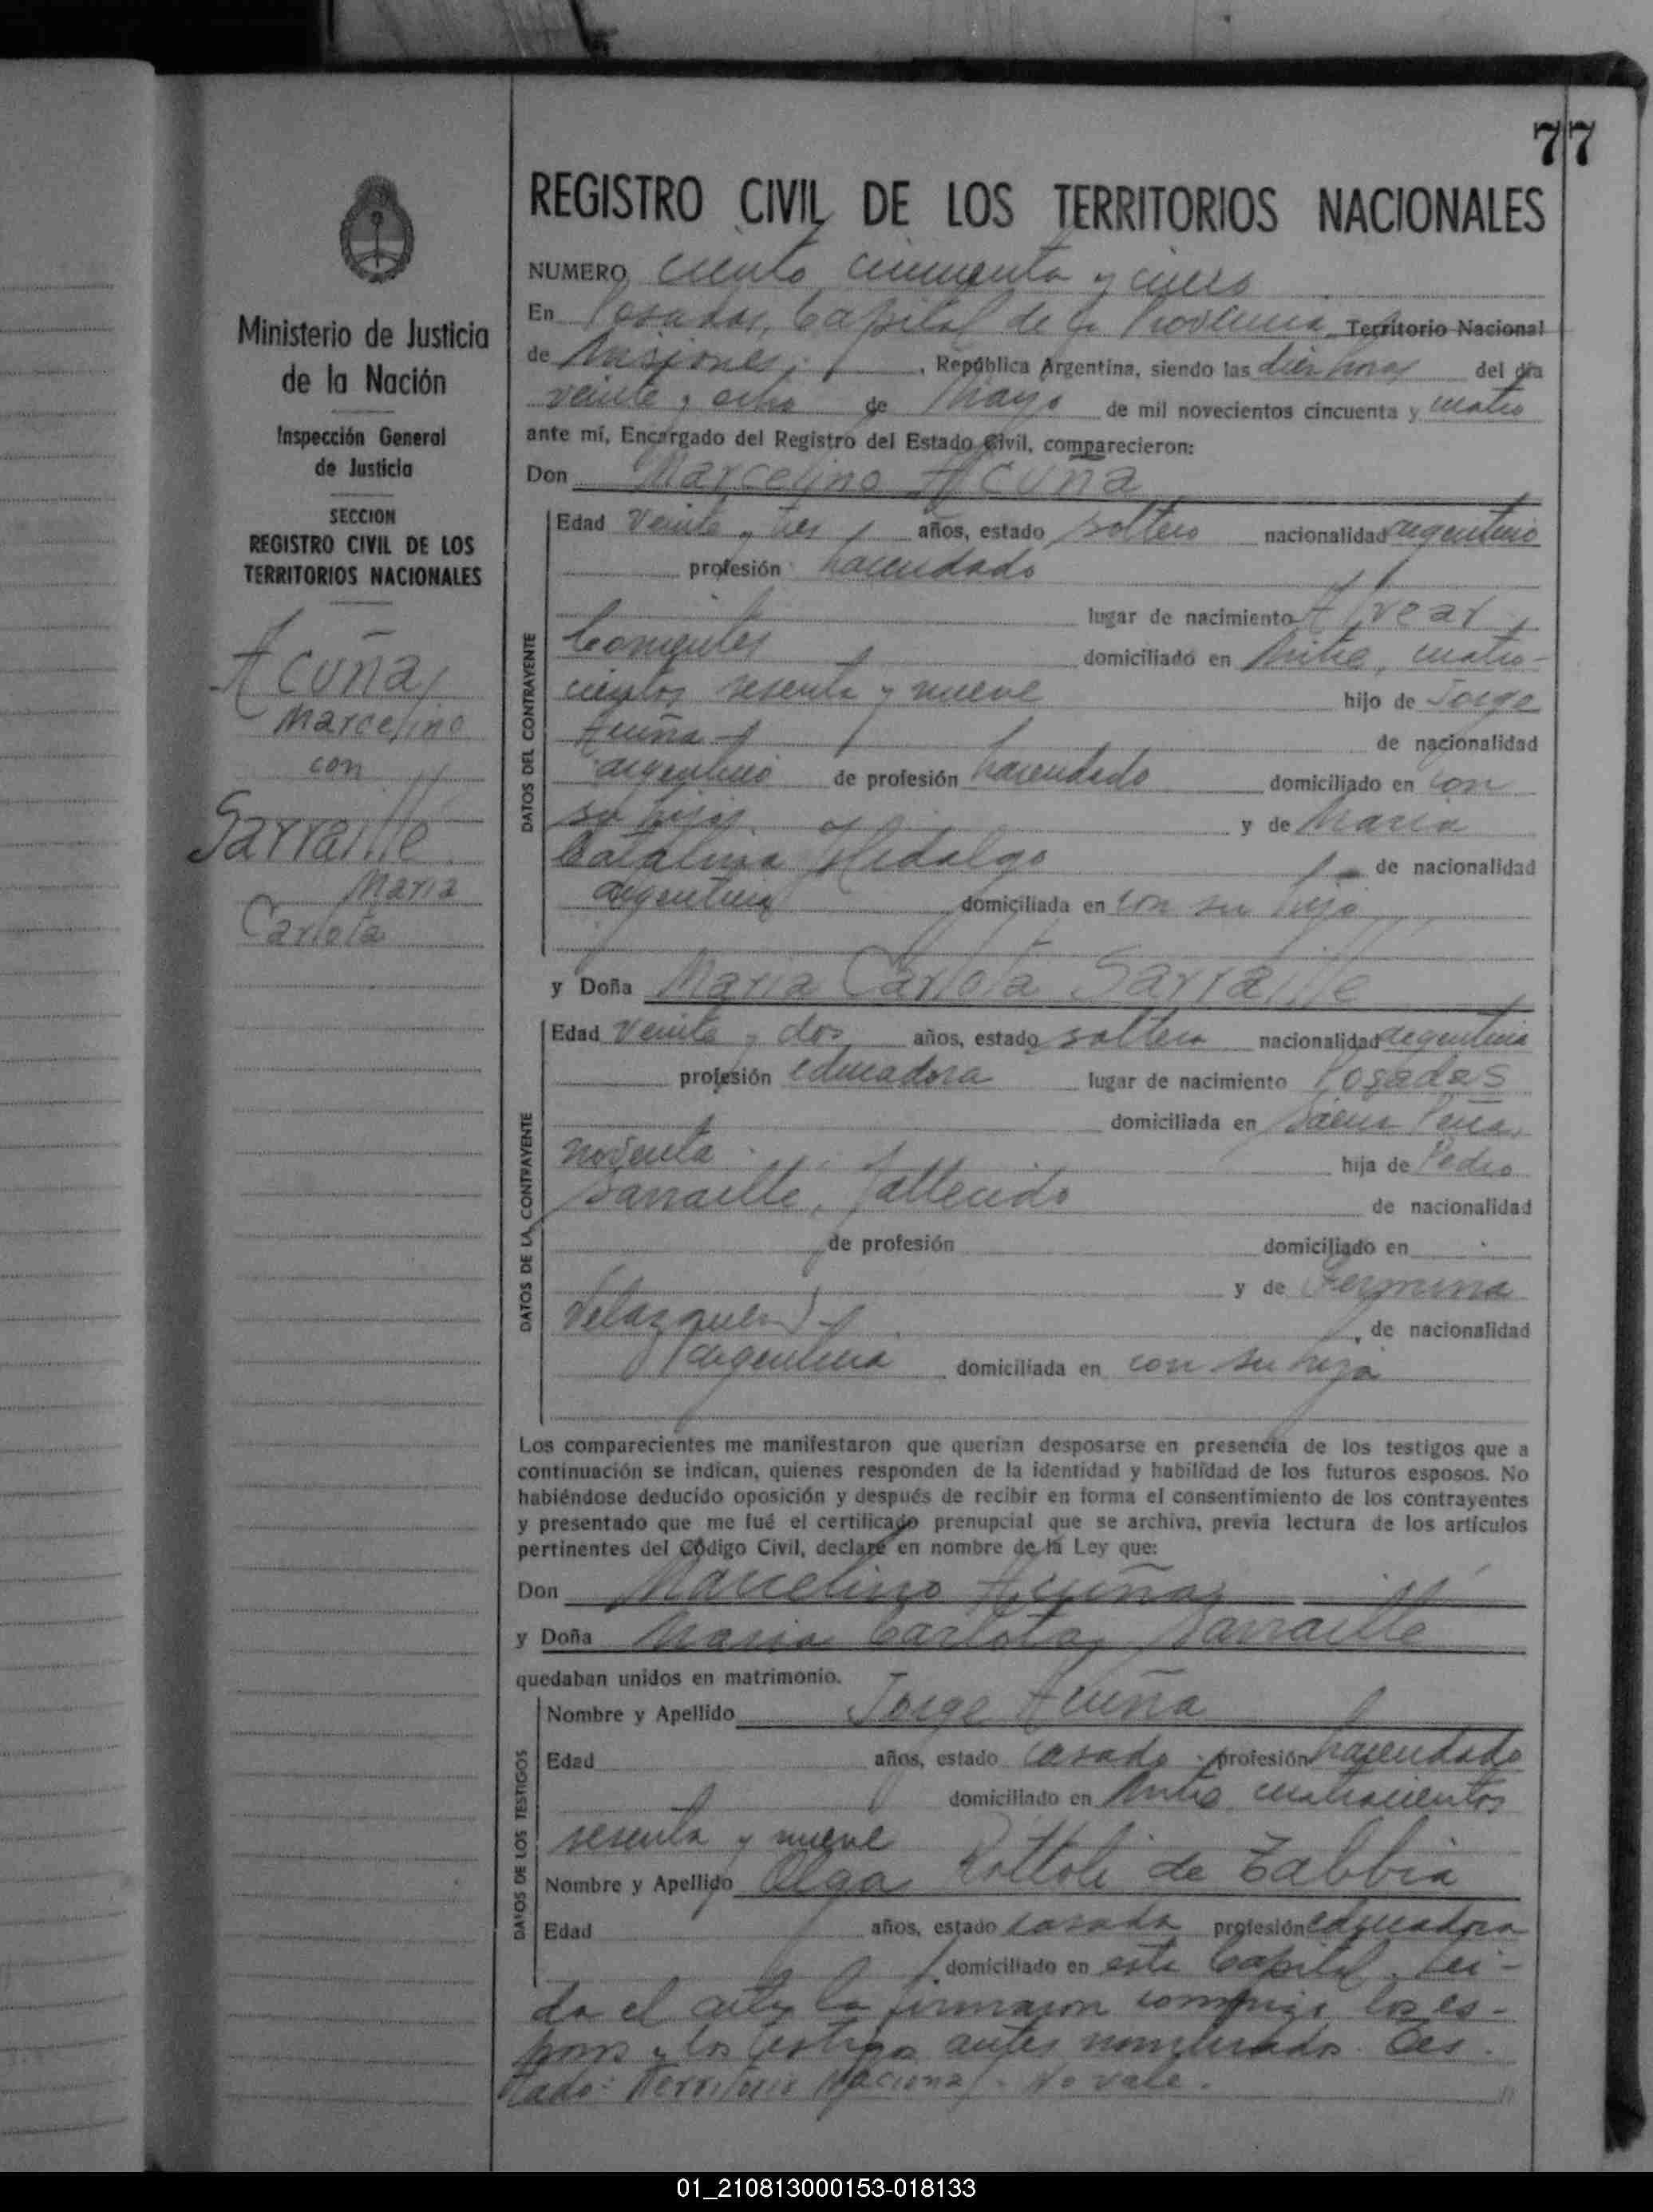 77
REGISTRO CIVIL DE LOS TERRITORIOS NACIONALES
Ministerio de Justicia
de la Nación
Inspección General
de Justicia
SECCION
REGISTRO CIVIL DE LOS
TERRITORIOS NACIONALES
Acuña,
Marcelino
con
Sarraille
Maria
Carlota
NUMERO ciento cincuenta y cinco
En Posadas, Capital de la Provincia Territorio Nacional
de Misiones, República Argentina, siendo las diez horas del día
veinte y ocho de Mayo de mil novecientos cincuenta y cuatro
ante mí, Encargado del Registro del Estado Civil, comparecieron:
Don Marcelino Acuña
DATOS DEL CONTRAYENTE
Edad Veinte y tres años, estado soltero nacionalidad argentino
profesión hacendado
lugar de nacimiento Alvear,
Corrientes domiciliado en Mitre, cuatro-
cientos sesenta y nueve hijo de Jorge
Acuña de nacionalidad
argentino de profesión hacendado domiciliado en con
su hijo y de Maria
Catalina Hidalgo de nacionalidad
argentina domiciliada en con su hijo
y Doña Maria Carlota Sarraille
DATOS DE LA CONTRAYENTE
Edad Veinte y dos años, estado soltera nacionalidad argentina
profesión educadora lugar de nacimiento Posadas
domiciliada en Saenz Peña,
noventa hija de Pedro
Sarraille, fallecido de nacionalidad
de profesión domiciliado en
y de Fermina
Velazquez, de nacionalidad
argentina domiciliada en con su hija
Los comparecientes me manifestaron que querían desposarse en presencia de los testigos que a
continuación se indican, quienes responden de la identidad y habilidad de los futuros esposos. No
habiéndose deducido oposición y después de recibir en forma el consentimiento de los contrayentes
y presentado que me fué el certificado prenupcial que se archiva, previa lectura de los artículos
pertinentes del Código Civil, declaré en nombre de la Ley que:
Don Marcelino Acuña
y Doña Maria Carlota Sarraille
quedaban unidos en matrimonio.
DATOS DE LOS TESTIGOS
Nombre y Apellido Jorge Acuña
Edad años, estado casado profesión hacendado
domiciliado en Mitre, cuatrocientos
sesenta y nueve
Nombre y Apellido Olga Rottoli de Zabbia
Edad años, estado casada profesión educadora
domiciliado en esta Capital. Lei-
da el acta la firmaron conmigo los es-
posos y los testigos antes nombrados. Tes-
tado: Territorio Nacional. No vale.
01_210813000153-018133